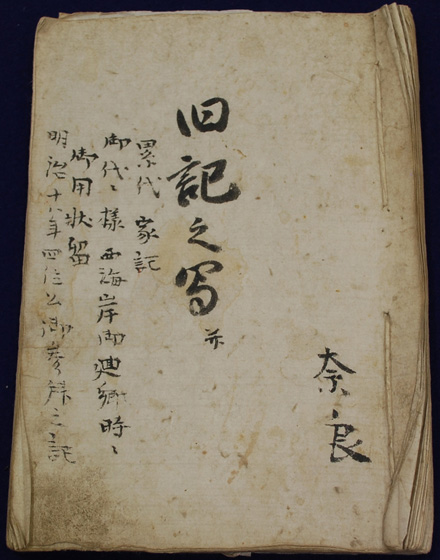 奈良
旧記之写 并
累代 家記
御代ゝ 様 西海岸御廻郷時ゝ
御用状留
明治十八年四位公御参之記